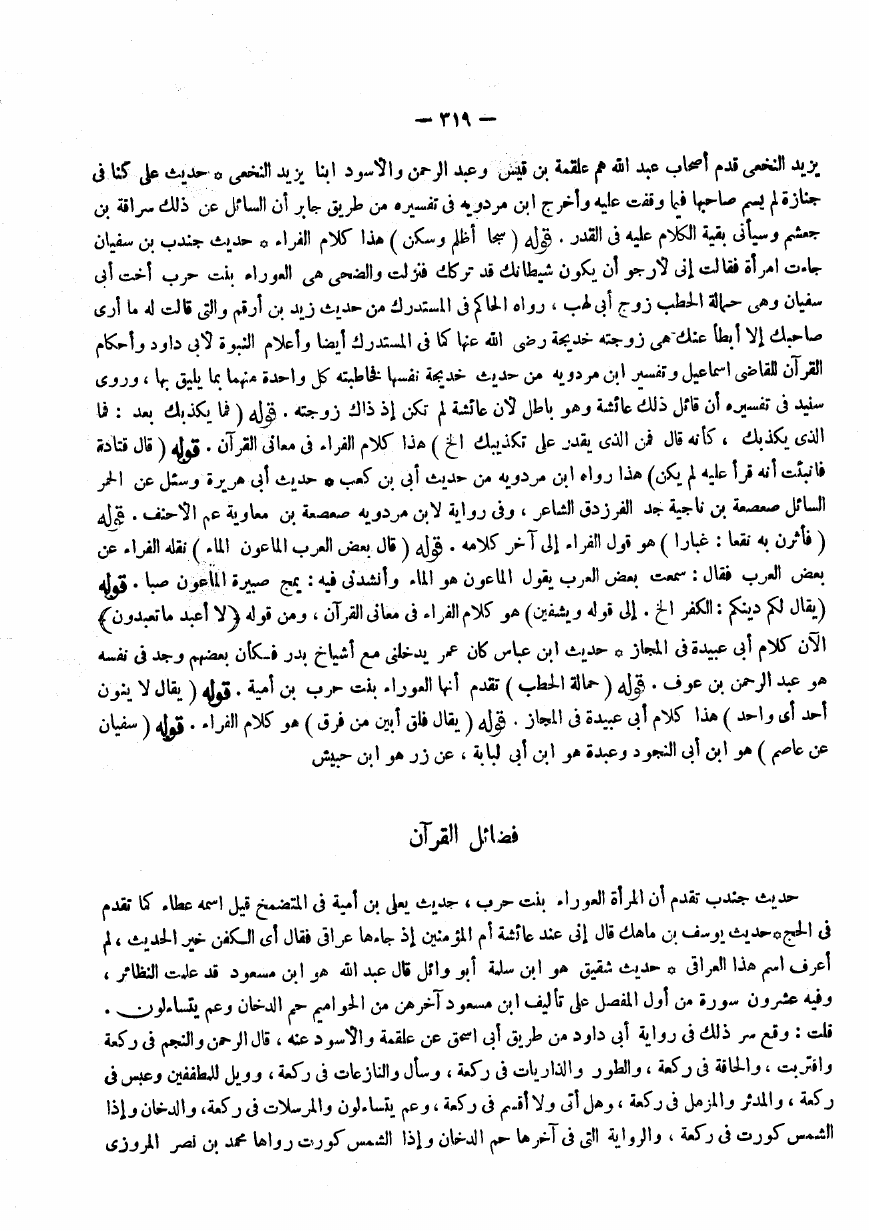 — ٣١٩ —
يزيد النخعى قدم أصحاب عبد الله هم علقمة بن قيس وعبد الرحمن والأسود ابنا يزيد النخعى * حديث على كنا فى
جنازة لم يسم صاحبها فيما وقفت عليه وأخرج ابن مردويه فى تفسيره من طريق جابر أن السائل عن ذلك سراقة بن
جعشم وسيأتى بقية الكلام عليه فى القدر . قوله ( سجا أظلم وسكن ) هذا كلام الفراء * حديث جندب بن سفيان
جاءت امرأة فقالت إنى لأرجو أن يكون شيطانك قد تركك فنزلت والضحى هى العوراء بنت حرب أخت أبى
سفيان وهى حمالة الحطب زوج أبى لهب ، رواه الحاكم فى المستدرك من حديث زيد بن أرقم والتى قالت له ما أرى
صاحبك إلا أبطأ عنك هى زوجته خديجة رضى الله عنها كما فى المستدرك أيضا وأعلام النبوة لأبى داود وأحكام
القرآن للقاضى اسماعيل وتفسير ابن مردويه من حديث خديجة نفسها فخاطبته كل واحدة منهما بما يليق بها ، وروى
سنيد فى تفسيره أن قائل ذلك عائشة وهو باطل لأن عائشة لم تكن إذ ذاك زوجته . قوله ( فما يكذبك بعد : فما
الذى يكذبك ، كأنه قال فمن الذى يقدر على تكذيبك الخ ) هذا كلام الفراء فى معانى القرآن . قوله ( قال قتادة
فانبئت أنه قرأ عليه لم يكن) هذا رواه ابن مردويه من حديث أبى بن كعب * حديث أبى هريرة وسئل عن الحمر
السائل صعصعة بن ناجية جد الفرزدق الشاعر ، وفى رواية لابن مردويه صعصعة بن معاوية عم الأحنف . قوله
( فأثرن به نقعا : غبارا ) هو قول الفراء إلى آخر كلامه . قوله ( قال بعض العرب الماعون الماء ) نقله الفراء عن
بعض العرب فقال : سمعت بعض العرب يقول الماعون هو الماء وأنشدنى فيه : يمج صبيرة الماعون صبا . قوله
(يقال لكم دينكم : الكفر الخ . إلى قوله ويشفين) هو كلام الفراء فى معانى القرآن ، ومن قوله ﴿لا أعبد ما تعبدون﴾
الآن كلام أبى عبيدة فى المجاز * حديث ابن عباس كان عمر يدخلنى مع أشياخ بدر فكأن بعضهم وجد فى نفسه
هو عبد الرحمن بن عوف . قوله ( حمالة الحطب ) تقدم أنها العوراء بنت حرب بن أمية . قوله ( يقال لا ينون
أحد أى واحد ) هذا كلام أبى عبيدة فى المجاز . قوله ( يقال فلق أبين من فرق ) هو كلام الفراء . قوله ( سفيان
عن عاصم ) هو ابن أبى النجود وعبدة هو ابن أبى لبابة ، عن زر هو ابن حبيش
فضائل القرآن
حديث جندب تقدم أن المرأة العوراء بنت حرب ، حديث يعلى بن أمية فى المتضمخ قيل اسمه عطاء كما تقدم
فى الحج * حديث يوسف بن ماهك قال إنى عند عائشة أم المؤمنين إذ جاءها عراقى فقال أى الكفن خير الحديث ، لم
أعرف اسم هذا العراقى * حديث شقيق هو ابن سلمة أبو وائل قال عبد الله هو ابن مسعود قد علمت النظائر ،
وفيه عشرون سورة من أول المفصل على تأليف ابن مسعود آخرهن من الحواميم حم الدخان وعم يتساءلون .
قلت : وقع سر ذلك فى رواية أبى داود من طريق أبى اسحق عن علقمة والأسود عنه ، قال الرحمن والنجم فى ركعة
واقتربت ، والحاقة فى ركعة ، والطور والذاريات فى ركعة ، وسأل والنازعات فى ركعة ، وويل للمطففين وعبس فى
ركعة ، والمدثر والمزمل فى ركعة ، وهل أتى ولا أقسم فى ركعة ، وعم يتساءلون والمرسلات فى ركعة، والدخان وإذا
الشمس كورت فى ركعة ، والرواية التى فى آخرها حم الدخان وإذا الشمس كورت رواها محمد بن نصر المروزى